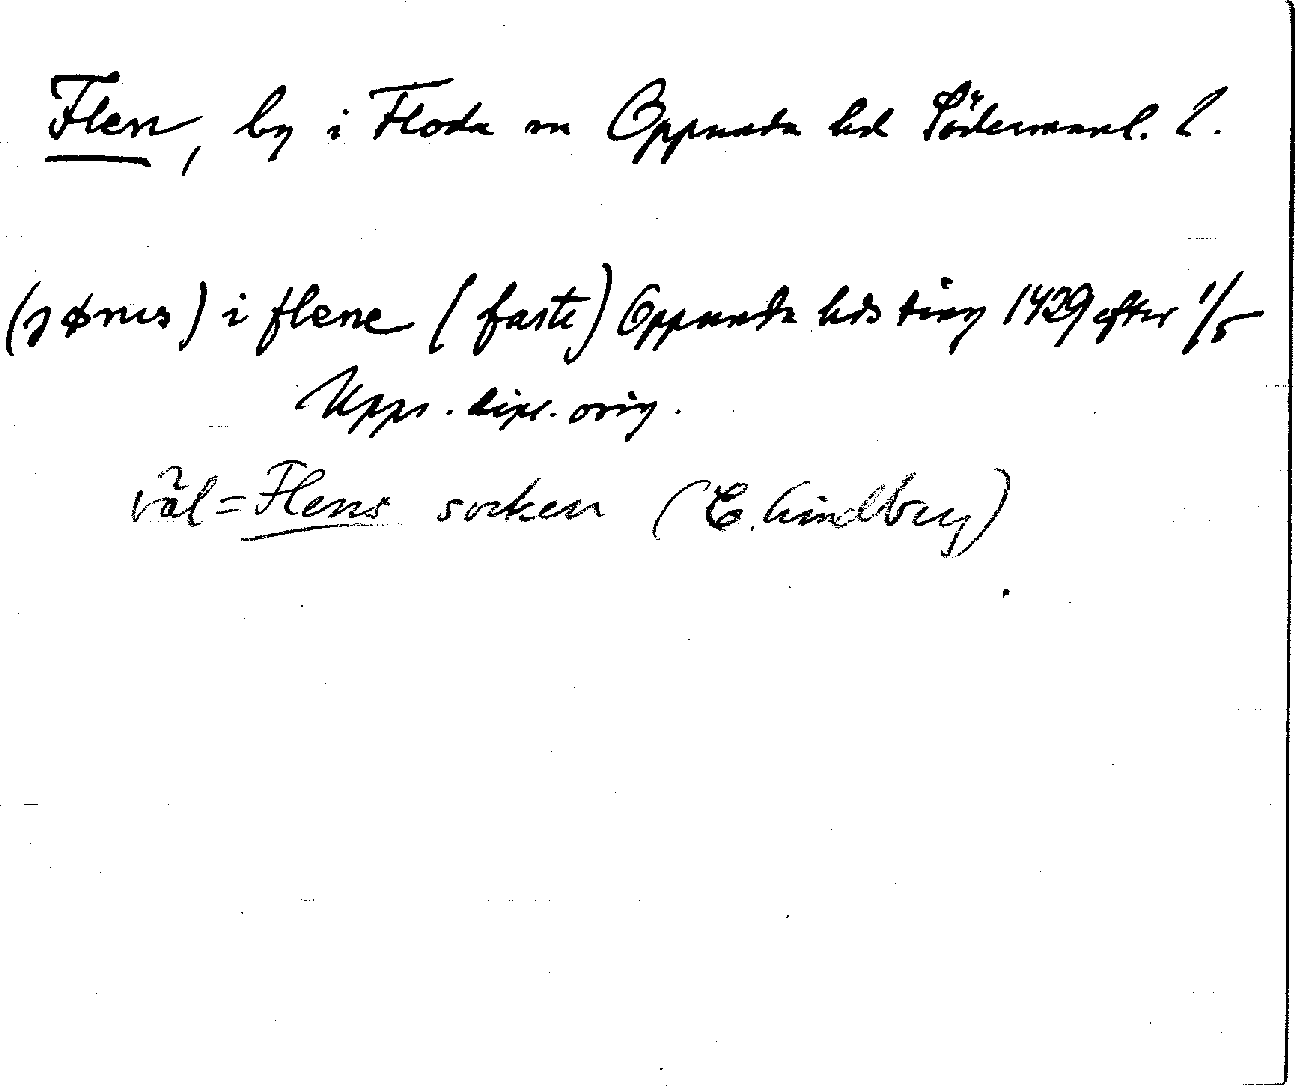 Flen, by i Floda sn Oppunda hd Södermanl. l.
(jønis) i flene (faste) Oppunda hds ting 1429 efter 1/5
Upps. dipl. orig.
väl = Flens socken (E. Lindberg)